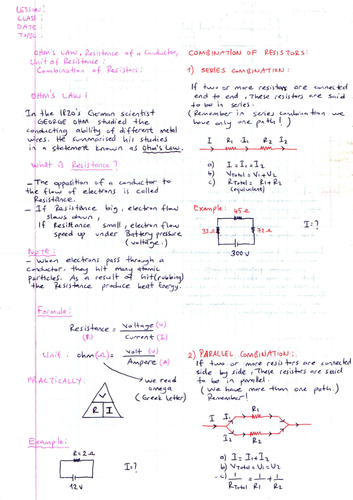 LESSON:
CLASS:
DATE:
TOPIC:
OHM'S LAW, Resistance of a Conductor,
Unit of Resistance:
Combination of Resistors:
OHM'S LAW:
In the 1820's German scientist
GEORGE OHM studied the
conducting ability of different metal
wires. He summarised his studies
in a statement known as Ohm's Law.
What is Resistance?
- The opposition of a conductor to
the flow of electrons is called
Resistance.
- If Resistance big, electron flow
slows down,
If Resistance small, electron flow
speed up under Battery pressure
(voltage.)
Note:
- When electrons pass through a
conductor. they hit many atomic
particles. As a result of hit(rubbing)
the Resistance produce heat Energy.
Formula:
Resistance = Voltage (V) / Current (I)
(R)
Unit: ohm (Ω) = Volt (V) / Ampere (A)
PRACTICALLY:
we read
omega
(Greek letter)
V
R I
Example:
R=2Ω
I=?
12V
COMBINATION OF RESISTORS:
1) SERIES COMBINATION:
If two or more resistors are connected
end to end, These resistors are said
to be in series.
(Remember in series combination we
have only one path!)
I R1 I1 R2 I2
a) I = I1 = I2
b) VTotal = V1 + V2
c) RTotal = R1 + R2
(equivalent)
Example:
45Ω
33Ω
72Ω
I=?
300V
2) PARALLEL COMBINATION:
If two or more resistors are connected
side by side, These resistors are said
to be in parallel.
(We have more than one path.)
Remember!
I I1 R1
I2 R2
a) I = I1 + I2
b) VTotal = V1 = V2
c) 1/RTotal = 1/R1 + 1/R2